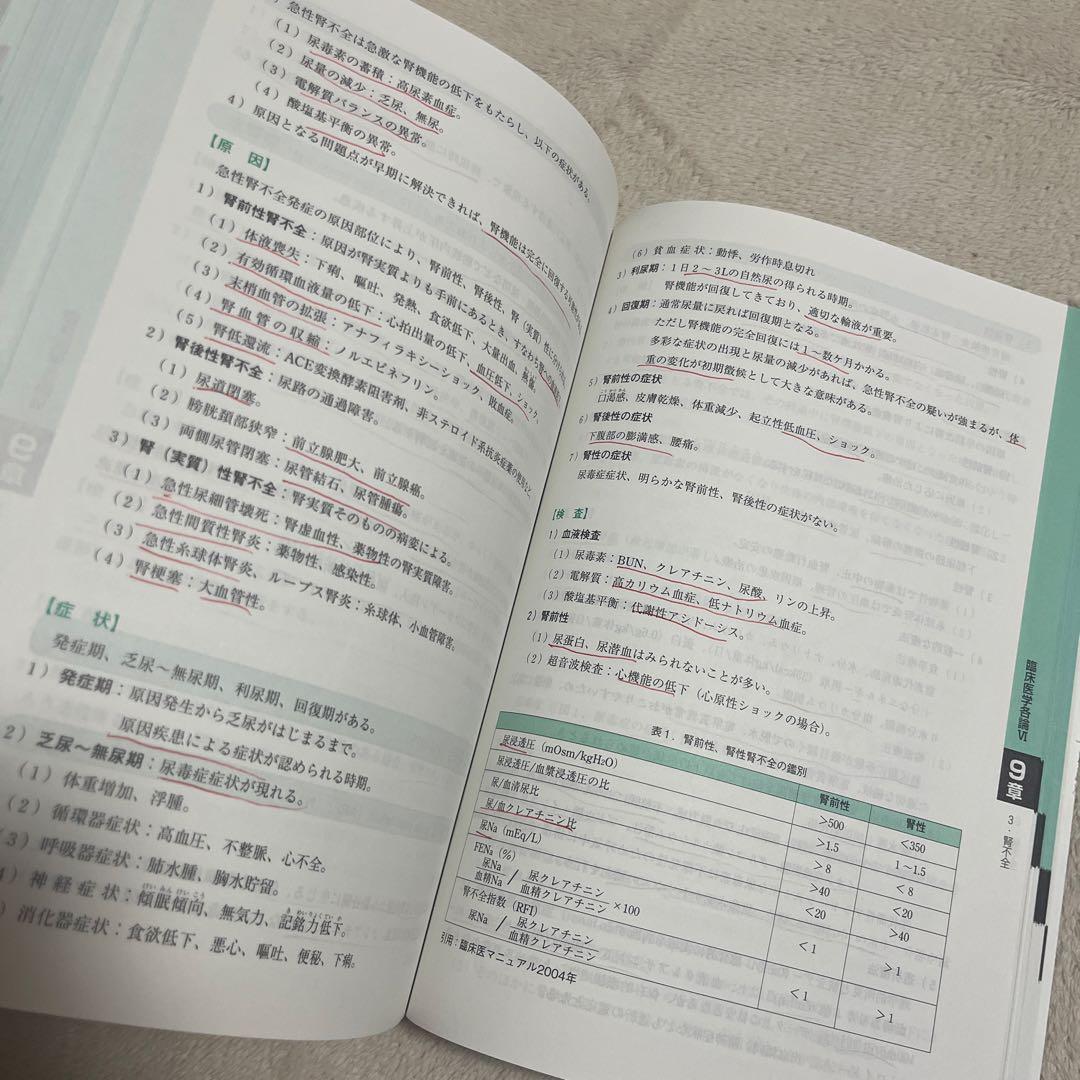 急性腎不全は急激な腎機能の低下をもたらし、以下の症状がある。
（1）尿毒素の蓄積：高尿素血症。
（2）尿量の減少：乏尿、無尿。
（3）電解質バランスの異常。
（4）酸塩基平衡の異常。
4）原因となる問題点が早期に解決できれば、腎機能は完全に回復する可能性がある。
【原　因】
急性腎不全発症の原因部位により、腎前性、腎後性、腎（実質）性に分けられる。
1）腎前性腎不全：原因が腎実質よりも手前にあるとき、すなわち腎への
（1）体液喪失：下痢、嘔吐、発熱、食欲低下、大量出血、熱傷。
（2）有効循環血液量の低下：心拍出量の低下、血圧低下、ショック。
（3）末梢血管の拡張：アナフィラキシーショック、敗血症。
（4）腎血管の収縮：ノルエピネフリン。
（5）腎低還流：ACE変換酵素阻害剤、非ステロイド系抗炎症薬の使用など。
2）腎後性腎不全：尿路の通過障害。
（1）尿道閉塞。
（2）膀胱頚部狭窄：前立腺肥大、前立腺癌。
（3）両側尿管閉塞：尿管結石、尿管腫瘍。
3）腎（実質）性腎不全：腎実質そのものの病変による。
（1）急性尿細管壊死：腎虚血性、薬物性の腎実質障害。
（2）急性間質性腎炎：薬物性、感染性。
（3）急性糸球体腎炎、ループス腎炎：糸球体、小血管障害。
（4）腎梗塞：大血管性。
【症　状】
発症期、乏尿～無尿期、利尿期、回復期がある。
1）発症期：原因発生から乏尿がはじまるまで。
原因疾患による症状が認められる時期。
2）乏尿～無尿期：尿毒症症状が現れる。
（1）体重増加、浮腫。
（2）循環器症状：高血圧、不整脈、心不全。
（3）呼吸器症状：肺水腫、胸水貯留。
4）神経症状：傾眠傾向、無気力、記銘力低下。
）消化器症状：食欲低下、悪心、嘔吐、便秘、下痢。
（6）貧血症状：動悸、労作時息切れ
3）利尿期：1日2～3Lの自然尿の得られる時期。
腎機能が回復してきており、適切な輸液が重要。
4）回復期：通常尿量に戻れば回復期となる。
ただし腎機能の完全回復には1～数ケ月かかる。
多彩な症状の出現と尿量の減少があれば、急性腎不全の疑いが強まるが、体
重の変化が初期徴候として大きな意味がある。
5）腎前性の症状
口渇感、皮膚乾燥、体重減少、起立性低血圧、ショック。
6）腎後性の症状
下腹部の膨満感、腰痛。
7）腎性の症状
尿毒症症状、明らかな腎前性、腎後性の症状がない。
【検　査】
1）血液検査
（1）尿毒素：BUN、クレアチニン、尿酸、リンの上昇。
（2）電解質：高カリウム血症、低ナトリウム血症。
（3）酸塩基平衡：代謝性アシドーシス。
2）腎前性
（1）尿蛋白、尿潜血はみられないことが多い。
（2）超音波検査：心機能の低下（心原性ショックの場合）。
表1．腎前性、腎性腎不全の鑑別
腎前性　腎性
尿浸透圧（mOsm/kgH₂O）　＞500　＜350
尿浸透圧/血漿浸透圧の比　＞1.5　1～1.5
尿/血清尿比　＞8　＜8
尿/血クレアチニン比　＞40　＜20
尿Na（mEq/L）　＜20　＞40
FENa（%）
尿Na/血精Na / 尿クレアチニン/血精クレアチニン×100　＜1　＞1
腎不全指数（RFI）
尿Na / 尿クレアチニン/血精クレアチニン　＜1　＞1
引用：臨床医マニュアル2004年
臨床医学各論Ⅵ
9章
3．腎不全